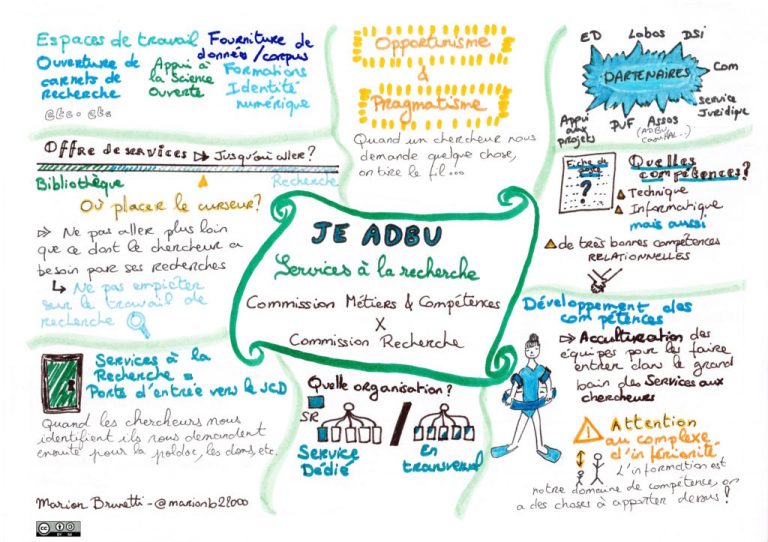 Espaces de travail
Fourniture de
données / corpus
Ouverture de
carnets de
recherche
Appui à
la Science
Ouverte
Formations
Identité
numérique
etc. etc
Opportunisme
&
Pragmatisme
Quand un chercheur nous
demande quelque chose,
on tire le fil...
ED
Labos
DSi
Com
Service
Juridique
PARTENAIRES
Appui
aux
projets
PUF
Assos
(ADBU
Offre de services
Jusqu'où aller?
Bibliothèque
Recherche
Où placer le curseur?
Ne pas aller plus loin
que ce dont le chercheur a
besoin par ses recherches
Ne pas empiéter
sur le travail de
recherche
JE ADBU
Services à la recherche
Commission Métiers & Compétences
X
Commission Recherche
Fiche de
poste
?
Quelles
compétences?
Technique
Informatique
mais aussi
de très bonnes compétences
RELATIONNELLES
Développement des
compétences
Acculturation des
équipes pour les faire
entrer dans le grand
bain des Services aux
chercheurs
Attention
au complexe
d'infériorité
L'information est
notre domaine de compétence, on
a des choses à apporter dessus!
Services à la
Recherche =
Porte d'entrée vers le SCD
Quand les chercheurs nous
identifient ils nous demandent
ensuite pour la poldoc, les dons, etc.
Quelle organisation?
SR
Service
Dédié
/
En
transversal
Marion Brunetti - @marionb22000
CC BY SA